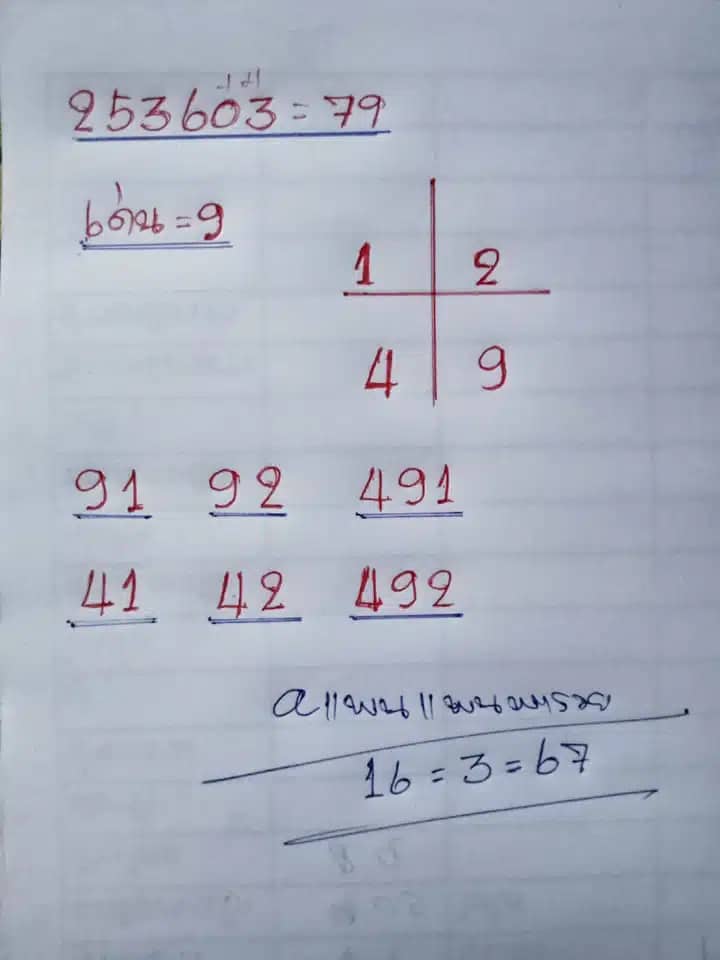 253603=79
เด่น=9
1 2
4 9
91 92 491
41 42 492
16=3=67